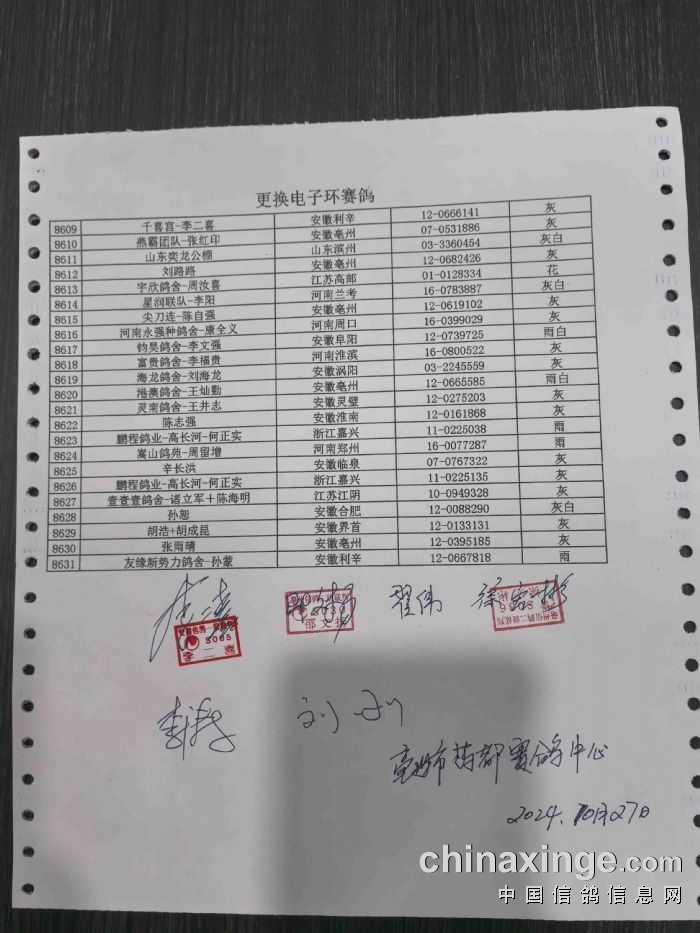 更换电子环赛鸽
8609 千喜宫-李二喜 安徽利辛 12-0666141 灰
8610 燕霸团队-张红印 安徽亳州 07-0531886 灰
8611 山东奕龙公棚 山东滨州 03-3360454 灰白
8612 刘路路 安徽亳州 12-0682426 灰
8613 宇欣鸽舍-周汝喜 江苏高邮 01-0128334 花
8614 星润联队-李阳 河南兰考 16-0783887 灰白
8615 尖刀连-陈自强 安徽亳州 12-0619102 灰
8616 河南永强种鸽舍-康全义 河南周口 16-0399029 灰
8617 钧昊鸽舍-李文强 安徽阜阳 12-0739725 雨白
8618 富贵鸽舍-李福贵 河南淮滨 16-0800522 灰
8619 海龙鸽舍-刘海龙 安徽涡阳 03-2245559 灰
8620 港澳鸽舍-王灿勤 安徽亳州 12-0665585 雨白
8621 灵南鸽舍-王井志 安徽灵璧 12-0275203 灰
8622 陈志强 安徽淮南 12-0161868 灰
8623 鹏程鸽业-高长河-何正实 浙江嘉兴 11-0225038 雨
8624 嵩山鸽苑-周留增 河南郑州 16-0077287 雨
8625 辛长洪 安徽临泉 07-0767322 灰
8626 鹏程鸽业-高长河-何正实 浙江嘉兴 11-0225135 灰
8627 壹壹壹鸽舍-诸立军+陈海明 江苏江阴 10-0949328 灰
8628 孙恕 安徽合肥 12-0088290 灰白
8629 胡浩+胡成昆 安徽界首 12-0133131 灰
8630 张雨晴 安徽亳州 12-0395185 灰
8631 友缘新势力鸽舍-孙蒙 安徽利辛 12-0667818 雨
翟伟
S005
李二喜
亳州市药都赛鸽中心
2024.10月27日
chinaxinge.com
中国信鸽信息网